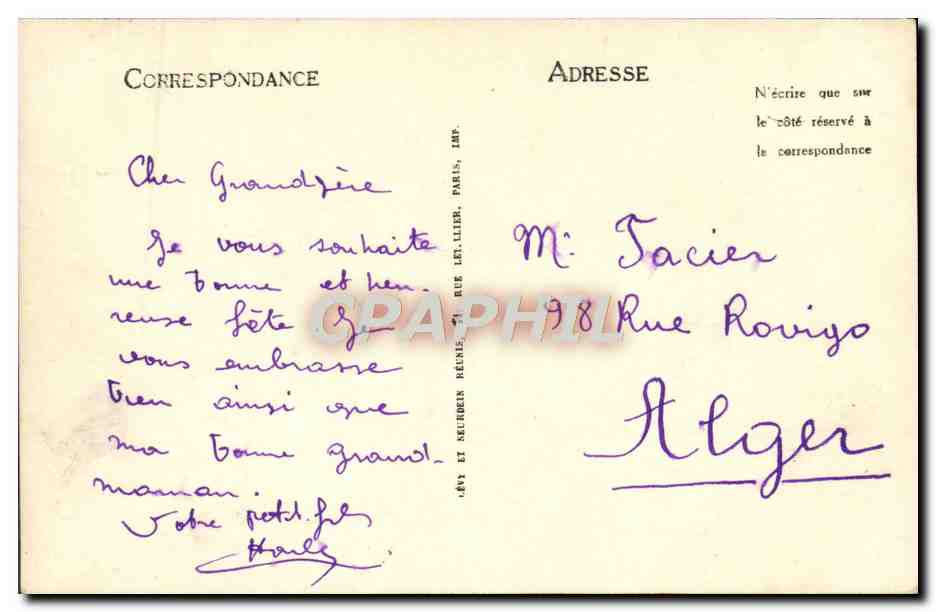 CORRESPONDANCE
Cher Grandpère
Je vous souhaite
une bonne et heu-
reuse fête Je
vous embrasse
bien ainsi que
ma bonne grand-
maman.
Votre petit-fils
LÉVY ET NEURDEIN RÉUNIS, 44 RUE LETELLIER, PARIS, IMP.
ADRESSE
N'écrire que sur
le côté réservé à
la correspondance
Mr Tacier
98 Rue Rovigo
Alger
CPAPHIL